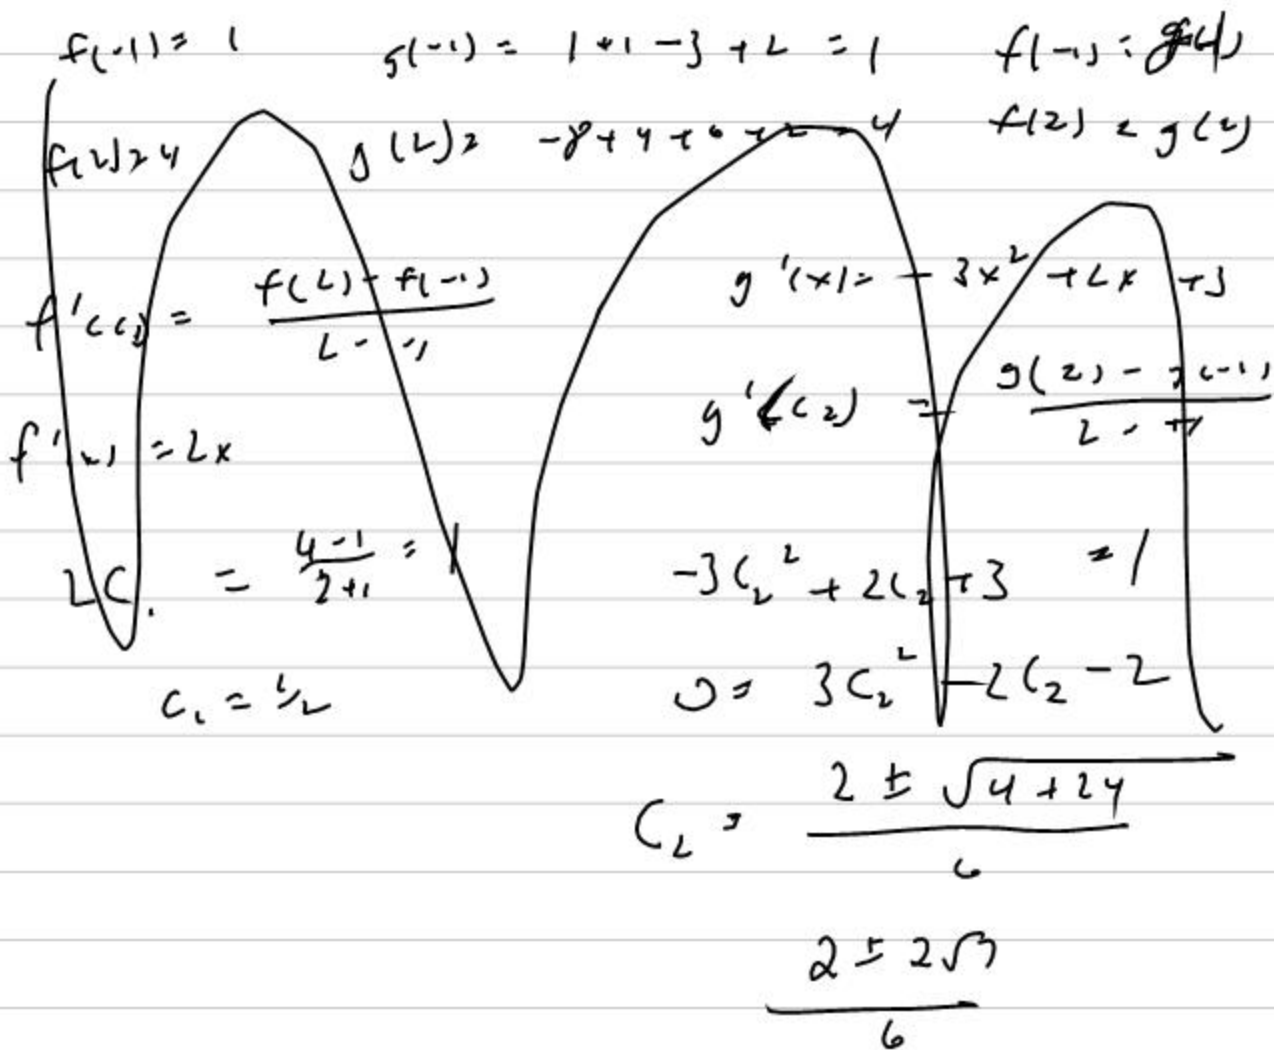 f(-1) = 1    g(-1) = 1 + 1 - 3 + 2 = 1    f(-1) =
f(2) = 4    g(2) = -8 + 4 + 6 + 2 = 4    f(2) = g(2)
f'(c1) = (f(2) - f(-1)) / (2 - -1)    g'(x) = -3x² + 2x + 3
f'(x) = 2x    g'(c2) = (g(2) - g(-1)) / (2 - -1)
2C1 = (4-1)/(2+1) = 1    -3C2² + 2C2 + 3 = 1
C1 = 1/2    0 = 3C2² - 2C2 - 2
C2 = (2 ± √(4+24)) / 6
(2 ± 2√7) / 6